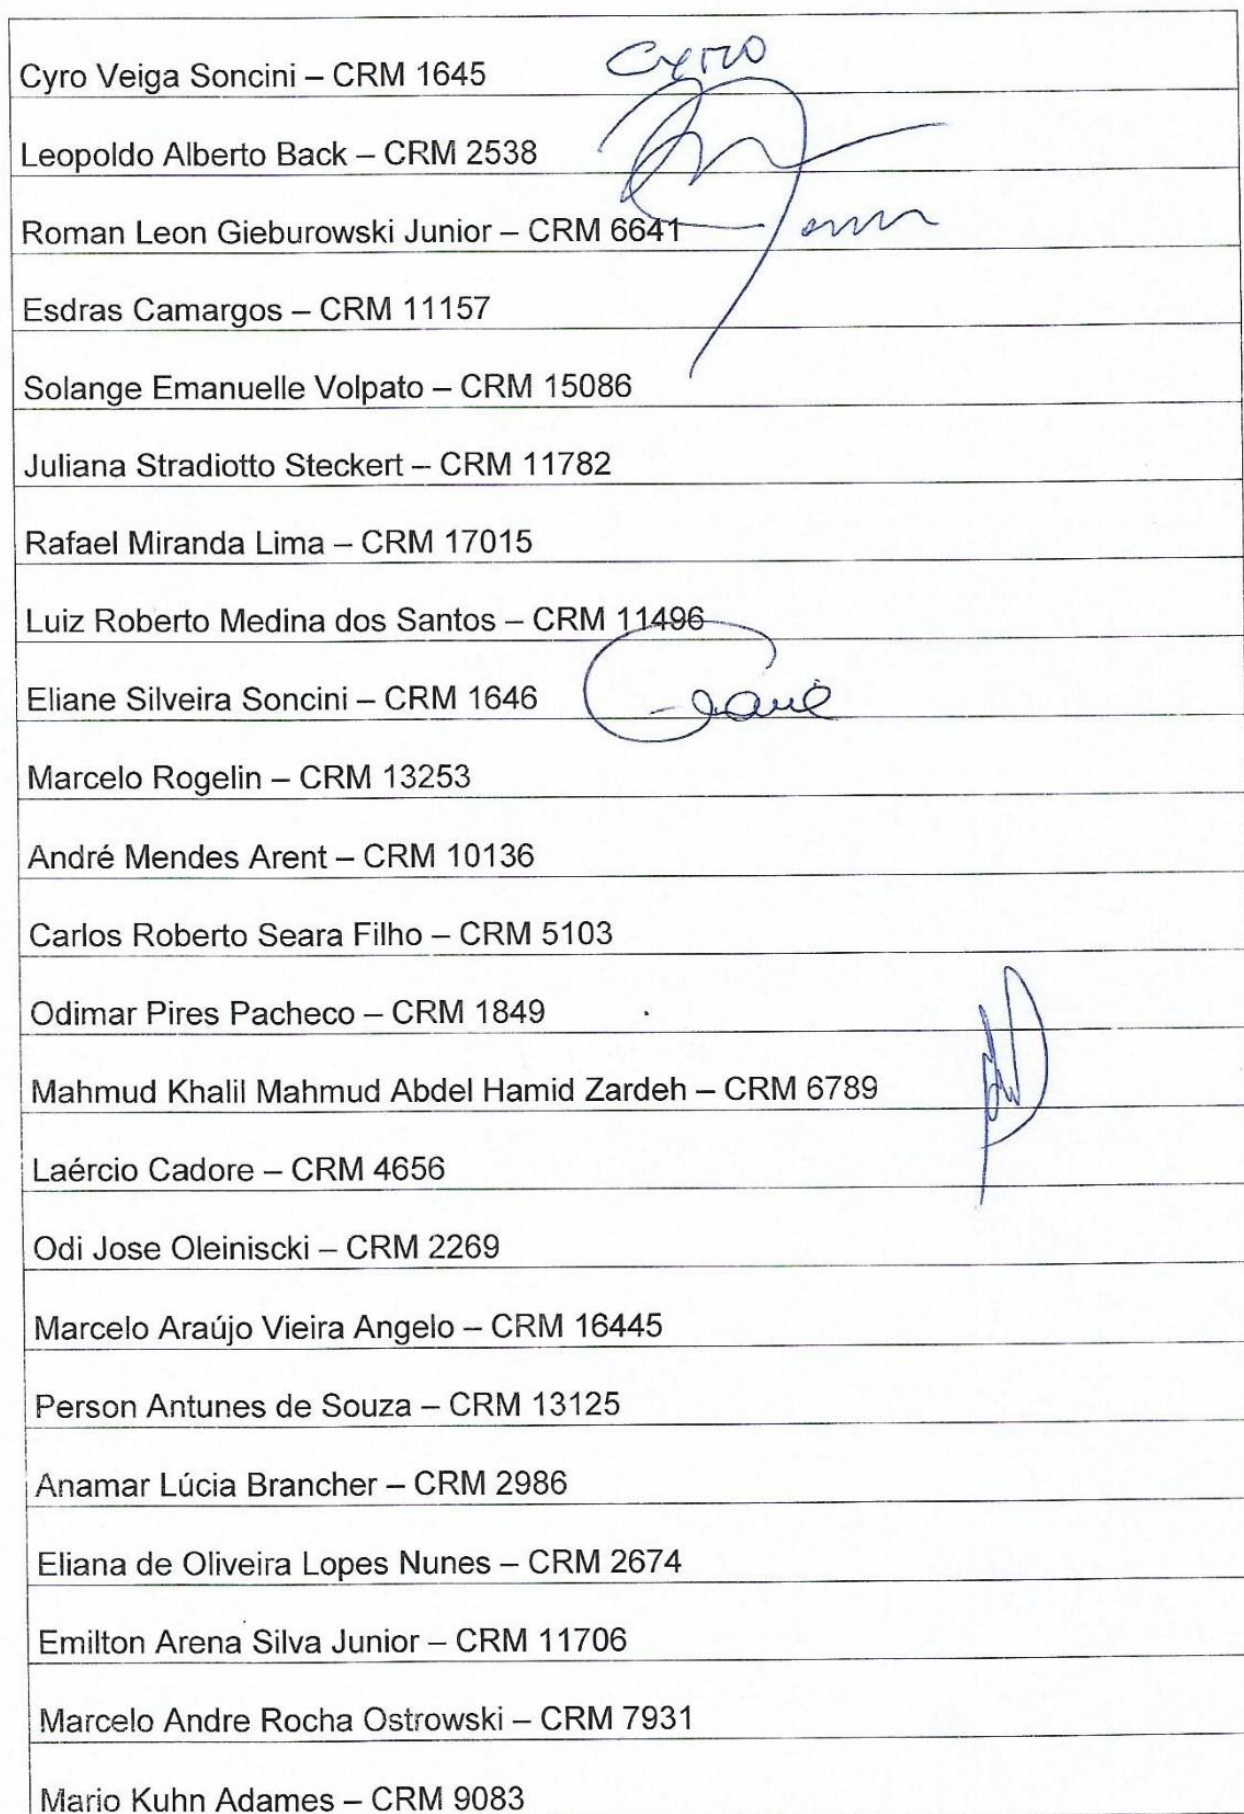 Cyro Veiga Soncini – CRM 1645 Cyro
Leopoldo Alberto Back – CRM 2538
Roman Leon Gieburowski Junior – CRM 6641
Esdras Camargos – CRM 11157
Solange Emanuelle Volpato – CRM 15086
Juliana Stradiotto Steckert – CRM 11782
Rafael Miranda Lima – CRM 17015
Luiz Roberto Medina dos Santos – CRM 11496
Eliane Silveira Soncini – CRM 1646
Marcelo Rogelin – CRM 13253
André Mendes Arent – CRM 10136
Carlos Roberto Seara Filho – CRM 5103
Odimar Pires Pacheco – CRM 1849
Mahmud Khalil Mahmud Abdel Hamid Zardeh – CRM 6789
Laércio Cadore – CRM 4656
Odi Jose Oleiniscki – CRM 2269
Marcelo Araújo Vieira Angelo – CRM 16445
Person Antunes de Souza – CRM 13125
Anamar Lúcia Brancher – CRM 2986
Eliana de Oliveira Lopes Nunes – CRM 2674
Emilton Arena Silva Junior – CRM 11706
Marcelo Andre Rocha Ostrowski – CRM 7931
Mario Kuhn Adames – CRM 9083